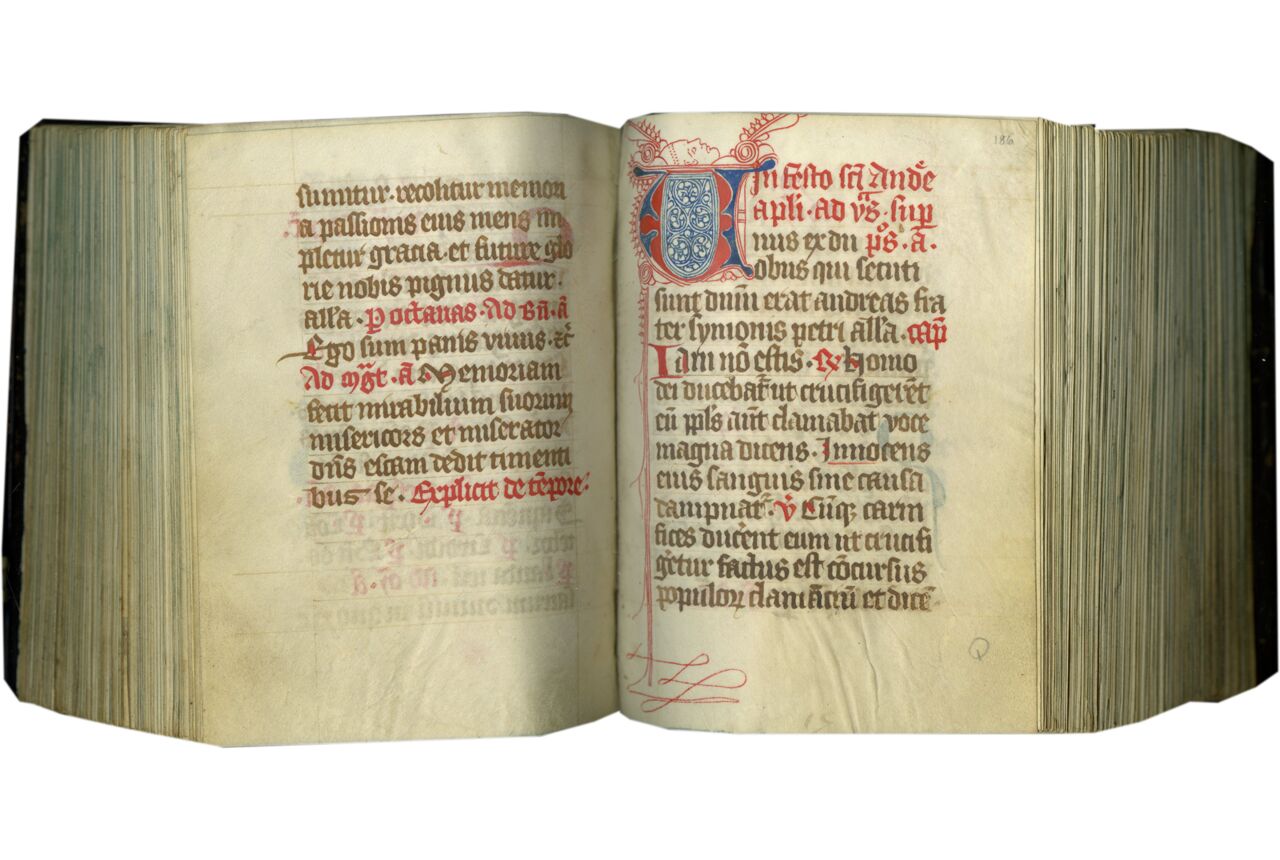 sumitur. recolitur memori
a passionis eius mens im
pletur gracia. et future glo
rie nobis pignus datur.
all'a. P octauas. Ad bn̄. a̅
Ego sum panis viuus. etc̄
Ad mgt̄. a̅ Memoriam
fecit mirabilium suorum
misericors et miserator
dn̄s escam dedit timenti
bus se. Explicit de tēpore.
186
In festo scī Andree
apli. ad vs̄. sup
nus ex du ps̄. a.
Uobus qui secuti
sunt dnm̄ erat andreas fra
ter symonis petri all'a. cap̄
Iam nō estis. R Homo
dei ducebat̄ ut crucifigerēt
eū ppls aūt clamabat voce
magna dicens. Innocens
eius sanguis sine causa
dampnat̄. V Cūq; carni
fices ducērent eum ut crucifi
getur factus est cōcursus
populoꝝ clamāciū et dicē
Q